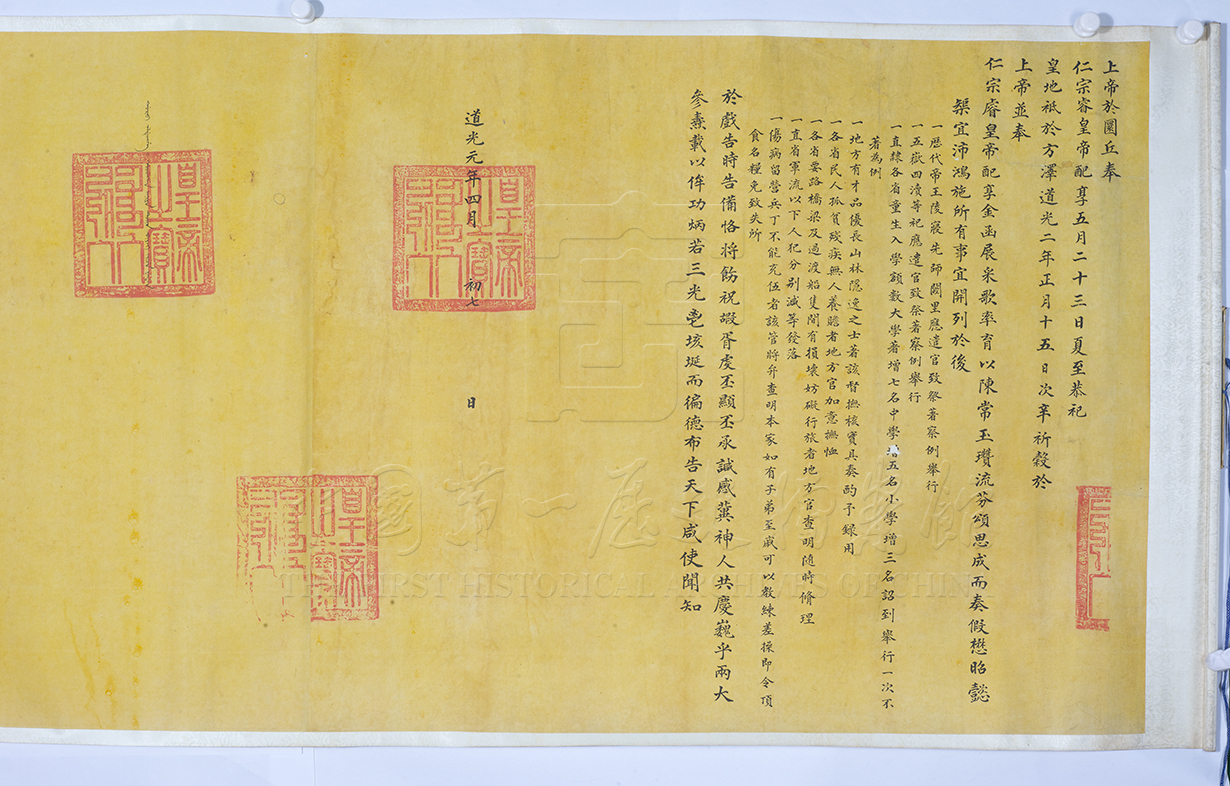 上帝於圜丘奉
仁宗睿皇帝配享五月二十三日夏至恭祀
皇地祇於方澤道光二年正月十五日次辛祈穀於
上帝並奉
仁宗睿皇帝配享金函展采歌率育以陳常玉瓚流芬頌思成而奏假懋昭懿
榘宜沛鴻施所有事宜開列於後
一歷代帝王陵寢先師闕里應遣官致祭著察例舉行
一五嶽四瀆等祀應遣官致祭著察例舉行
一直隸各省童生入學額數大學著增七名中學增五名小學增三名詔到舉行一次不
著為例
一地方有才品優長山林隱逸之士著該督撫核實具奏酌予錄用
一各省民人孤貧殘疾無人養贍者地方官加意撫恤
一各省要路橋梁及過渡船隻間有損壞妨礙行旅者地方官查明隨時脩理
一直省軍流以下人犯分別減等發落
一傷病留營兵丁不能充伍者該管將弁查明本家如有子弟至戚可以教練差操即令頂
食名糧免致失所
於戲告時告備恪將飭祝嘏胥虔丕顯丕承誠感冀神人共慶巍乎兩大
參燾載以侔功炳若三光亳垓埏而徧德布告天下咸使聞知
道光元年四月初七日
皇帝之寶
皇帝之寶
皇帝之寶
中國第一歷史檔案館
THE FIRST HISTORICAL ARCHIVES OF CHINA